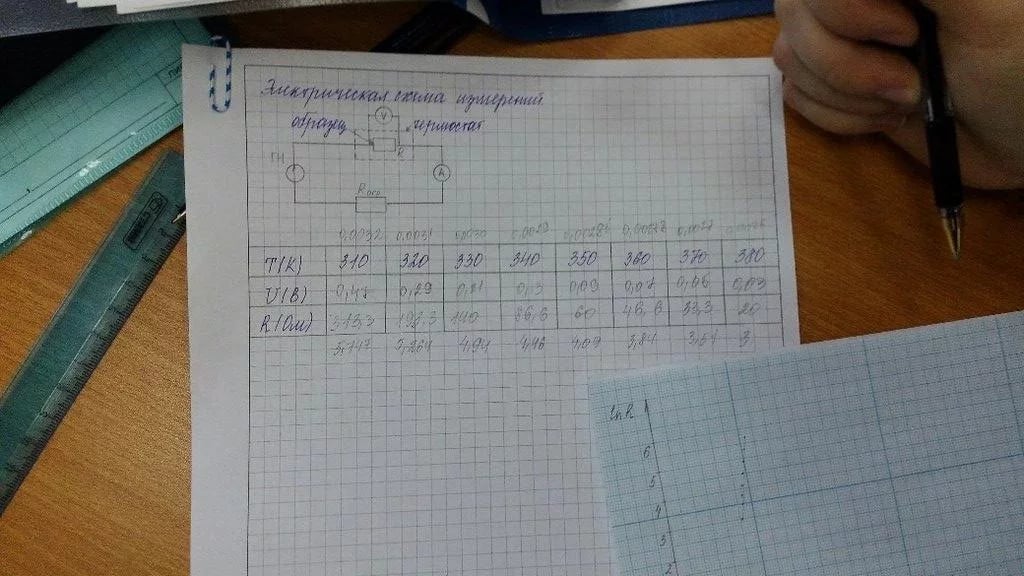 Электрическая схима измерений
V
образец
термостат
R
ГН
A
Rогр
0,0032 0,0031 0,0030 0,0029 0,00286 0,00278 0,0027
T(K) 310 320 330 340 350 360 370 380
U(B) 0,47 0,29 0,21 0,13 0,09 0,07 0,05 0,03
R(Ом) 313,3 193,3 140 86,6 60 46,6 33,3 20
5,747 5,264 4,94 4,46 4,09 3,84 3,51 3
lnR
6
5
4
3
2